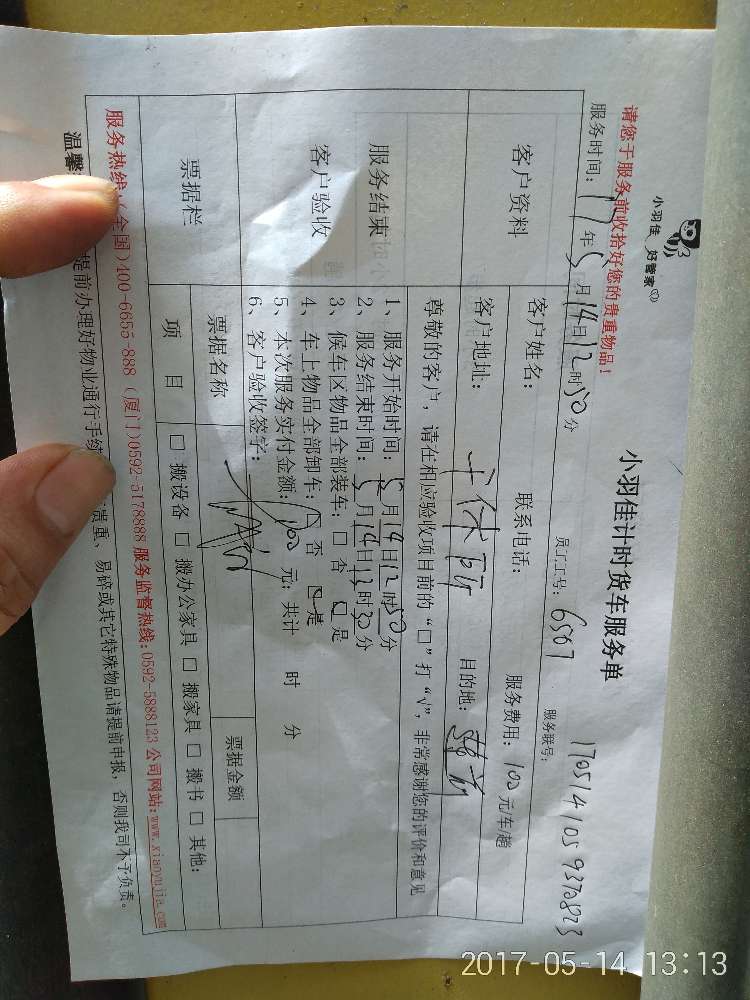 小羽佳 好管家
小羽佳计时货车服务单
请您于服务前收拾好您的贵重物品！
员工工号：6507 服务联号：170514105 9370823
服务时间：17年5月14日12时50分
客户资料
客户姓名： 联系电话： 服务费用：100元/车/趟
客户地址： 目的地：
尊敬的客户，请在相应验收项目前的“□”打“√”，非常感谢您的评价和意见
服务结束
客户验收
1、服务开始时间：5月14日12时50分
2、服务结束时间：5月14日13时30分
3、候车区物品全部装车：□ 否 □ 是
4、车上物品全部卸车：□ 否 □ 是
5、本次服务实付金额：100 元；共计 时 分
6、客户验收签字：
票据栏
票据名称 票据金额
项 目 □ 搬设备 □ 搬办公家具 □ 搬家具 □ 搬书 □ 其他：
服务热线：(全国)400-6655-888 (厦门)0592-5178888 服务监督热线:0592-5888123 公司网站:www.xiaoyujia.com
温馨 提前办理好物业通行手续 贵重、易碎或其它特殊物品请提前申报，否则我司不予负责。
2017-05-14 13:13